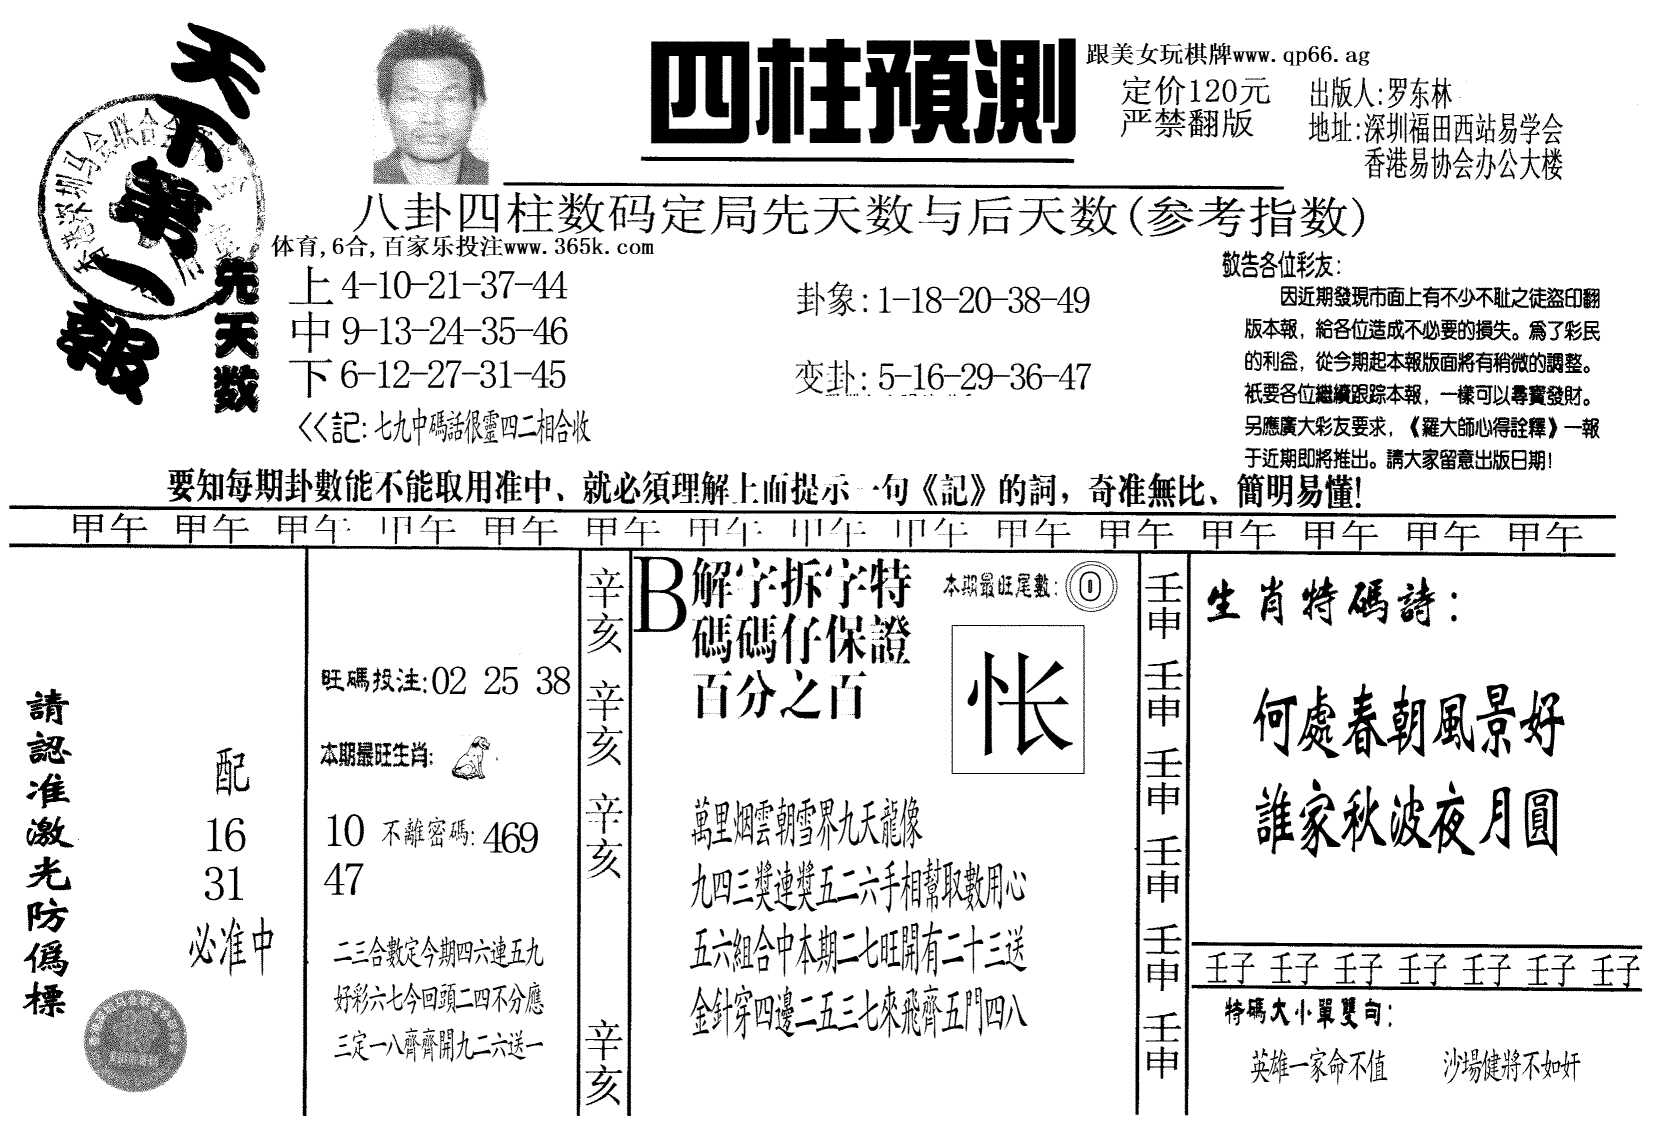 天下第一報
四柱預測
跟美女玩棋牌www.qp66.ag
定价120元
严禁翻版
出版人:罗东林
地址:深圳福田西站易学会
香港易协会办公大楼
八卦四柱数码定局先天数与后天数(参考指数)
体育,6合,百家乐投注www.365k.com
先天数
上 4-10-21-37-44
中 9-13-24-35-46
下 6-12-27-31-45
卦象: 1-18-20-38-49
变卦: 5-16-29-36-47
<<記: 七九中碼話很靈四二相合收
敬告各位彩友:
因近期發現市面上有不少不耻之徒盜印翻
版本報, 給各位造成不必要的損失。爲了彩民
的利益, 從今期起本報版面將有稍微的調整。
衹要各位繼續跟踪本報, 一樣可以尋寶發財。
另應廣大彩友要求, 《羅大師心得詮釋》一報
于近期即將推出。請大家留意出版日期!
要知每期卦數能不能取用准中、就必須理解上面提示一句《記》的詞, 奇准無比、簡明易懂!
甲午 甲午 甲午 甲午 甲午 甲午 甲午 甲午 甲午 甲午 甲午 甲午 甲午 甲午 甲午
請認准激光防僞標
配
16
31
必准中
旺碼投注:02 25 38
本期最旺生肖:
10 不離密碼: 469
47
二三合數定今期四六連五九
好彩六七今回頭二四不分應
三定一八齊齊開九二六送一
辛亥 辛亥 辛亥 辛亥
B 解字拆字特
碼碼仔保證
百分之百
本期最旺尾數: 0
怅
萬里烟雲朝雪界九天龍像
九四三獎連獎五二六手相幫取數用心
五六組合中本期二七旺開有二十三送
金針穿四邊二五三七來飛齊五門四八
壬申 壬申 壬申 壬申 壬申 壬申
生肖特碼詩:
何處春朝風景好
誰家秋波夜月圓
壬子 壬子 壬子 壬子 壬子 壬子 壬子
特碼大小單雙句:
英雄一家命不值 沙場健將不如奸